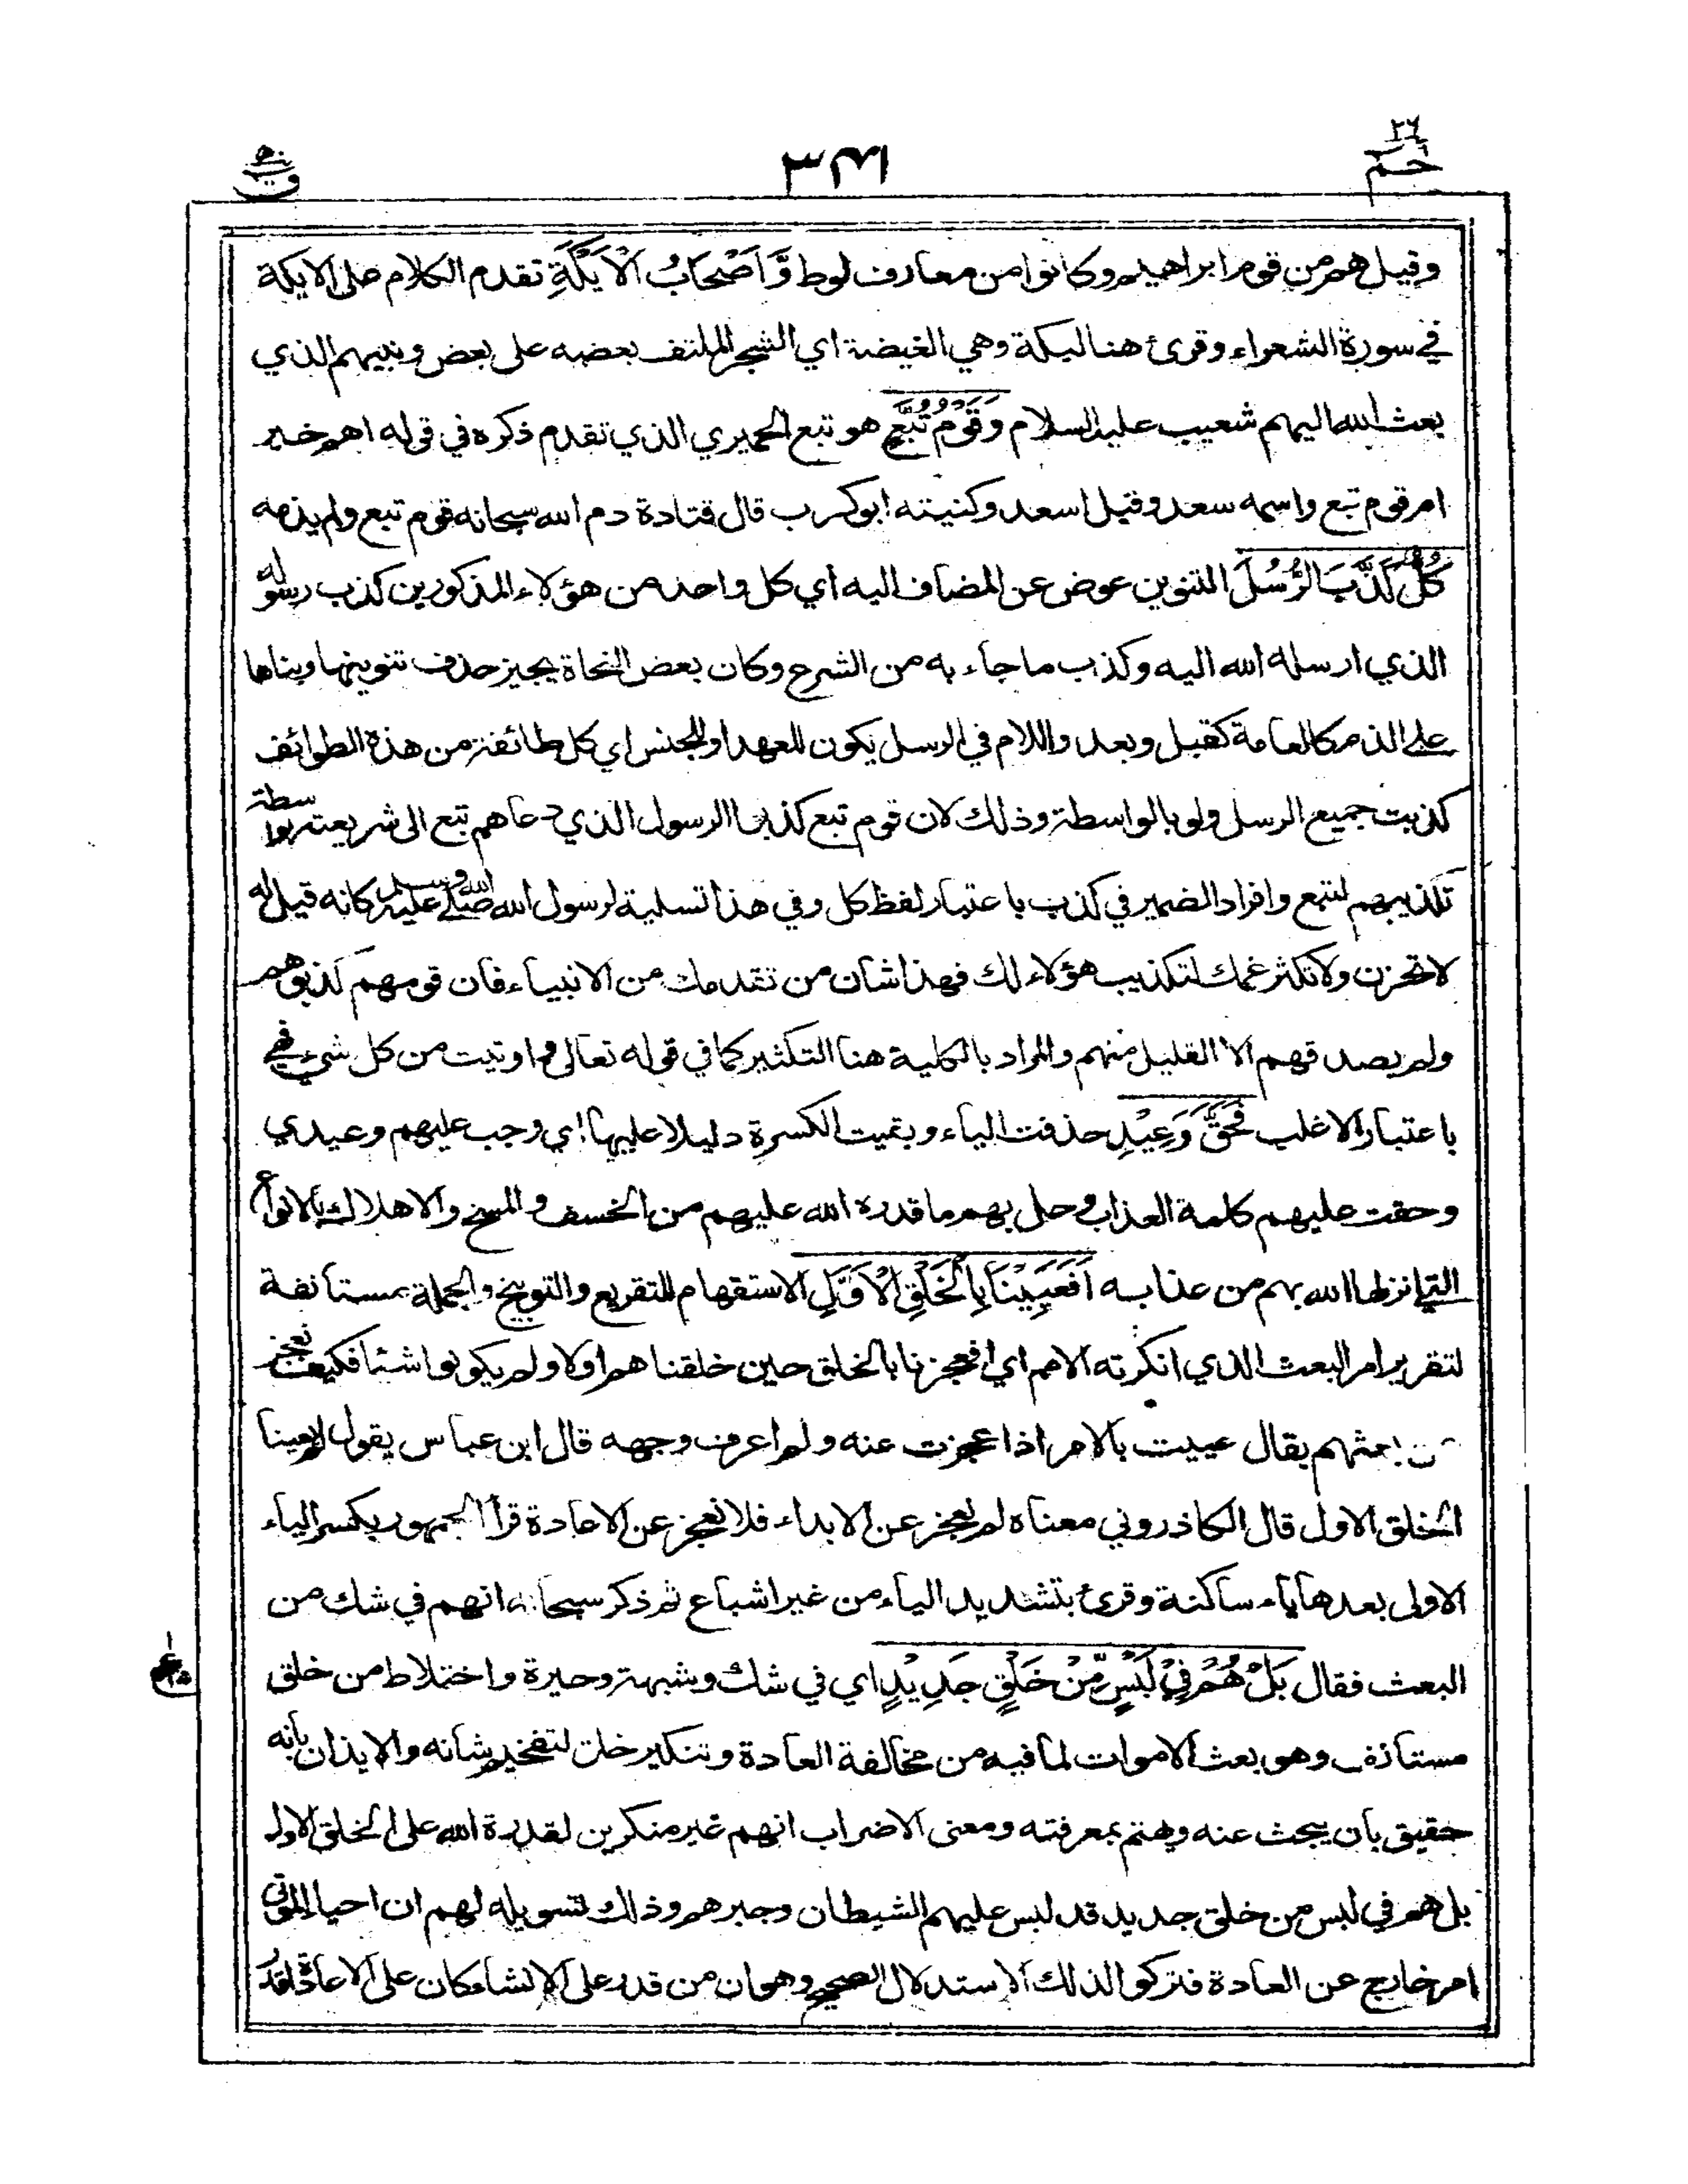 حم ٢٦
٣٤١
ق ٥٠
وقيل هم من قوم ابراهيم وكانوا من معارف لوط وَّاَصْحَابُ الْاَيْكَةِ تقدم الكلام على الايكة
في سورة الشعراء وقرئ هنا ليكة وهي الغيضة اي الشجر الملتف بعضه على بعض ونبيهم الذي
بعث الله اليهم شعيب عليه السلام وَقَوْمُ تُبَّعٍ هو تبع الحميري الذي تقدم ذكره في قوله اهم خير
ام قوم تبع واسمه سعد وقيل اسعد وكنيته ابو كرب قال قتادة ذم الله سبحانه قوم تبع ولم يذمه
كُلٌّ كَذَّبَ الرُّسُلَ التنوين عوض عن المضاف اليه أي كل واحد من هؤلاء المذكورين كذب رسوله
الذي ارسله الله اليه وكذب ما جاء به من الشرع وكان بعض النحاة يجيز حذف تنوينها وبناها
على الضم كالعامة كقبل وبعد واللام في الرسل يكون للعهد او للجنس اي كل طائفة من هذه الطوائف
كذبت جميع الرسل ولو بالواسطة وذلك لان قوم تبع كذبوا الرسول الذي دعاهم تبع الى شريعته بواسطة
تكذيبهم لتبع وافراد الضمير في كذب باعتبار لفظ كل وفي هذا تسلية لرسول الله صلى الله عليه وسلم كانه قيل له
لا تحزن ولا تكثر غمك لتكذيب هؤلاء لك فهذا شان من تقدمك من الانبياء فان قومهم كذبوهم
ولم يصدقهم الا القليل منهم والمراد بالكلية هنا التكثير كما في قوله تعالى واوتيت من كل شيء فهي
باعتبار الاغلب فَحَقَّ وَعِيْدِ حذفت الياء وبقيت الكسرة دليلا عليها اي وجب عليهم وعيدي
وحقت عليهم كلمة العذاب وحل بهم ما قدره الله عليهم من الخسف والمسخ والاهلاك بالانواع
التي انزلها الله بهم من عذابه اَفَعَيِيْنَا بِالْخَلْقِ الْاَوَّلِ الاستفهام للتقريع والتوبيخ والجملة مستانفة
لتقرير امر البعث الذي انكرته الامم اي افعجزنا بالخلق حين خلقناهم اولا ولم يكونوا شيئا فكيف نعجز
عن بعثهم يقال عييت بالامر اذا عجزت عنه ولم اعرف وجهه قال ابن عباس يقول لم يعينا
الخلق الاول قال الكاذروني معناه لم نعجز عن الابداء فلا نعجز عن الاعادة قرأ الجمهور بكسر الياء
الاولى بعدها ياء ساكنة وقرئ بتشديد الياء من غير اشباع ثم ذكر سبحانه انهم في شك من
البعث فقال بَلْ هُمْ فِيْ لَبْسٍ مِّنْ خَلْقٍ جَدِيْدٍ اي في شك وشبهة وحيرة واختلاط من خلق
مستانف وهو بعث الاموات لما فيه من مخالفة العادة وتنكير خلق لتفخيم شانه والايذان بانه
حقيق بان يبحث عنه ويهتم بمعرفته ومعنى الاضراب انهم غير منكرين لقدرة الله على الخلق الاول
بل هم في لبس من خلق جديد قد لبس عليهم الشيطان وحيرهم وذلك لتسويله لهم ان احياء الموتى
امر خارج عن العادة فتركوا لذلك الاستدلال الصحيح وهو ان من قدر على الانشاء كان على الاعادة اقدر